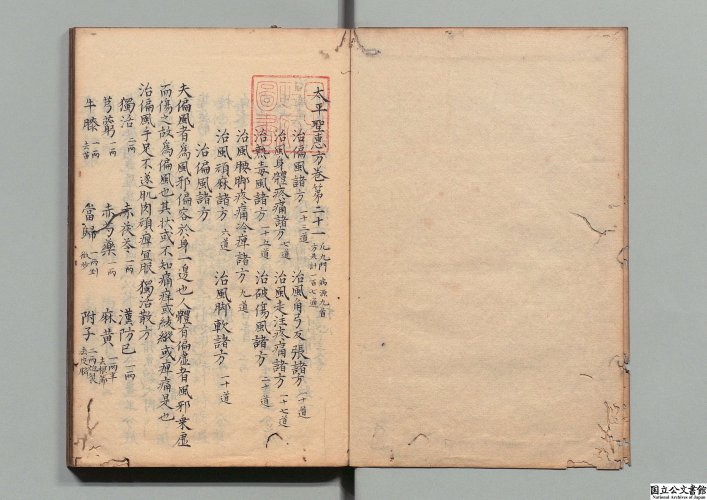 太平聖惠方卷第二十一 凡九門 病源九首 方共計一百七道
治偏風諸方 一十三道 治風角弓反張諸方 一十道
治風身體疼痛諸方 七道 治風走注疼痛諸方 一十七道
治熱毒風諸方 一十五道 治破傷風諸方 二十道
治風腰脚疼痛冷痺諸方 九道
治風頑麻諸方 六道 治風脚軟諸方 一十道
治偏風諸方
夫偏風者為風邪偏客於身一邊也人體有偏虛者風邪乘虛
而傷之故為偏風也其狀或不知痛痺或緩縱或痺痛是也
治偏風手足不遂肌肉頑痺宜服獨活散方
獨活 二兩 赤茯苓 一兩 漢防已 一兩
芎藭 一兩 赤芍藥 一兩 麻黃 一兩半 去根節
牛膝 一兩 去苗 當歸 一兩 附子 二兩炮裂
国立公文書館
National Archives of Japan